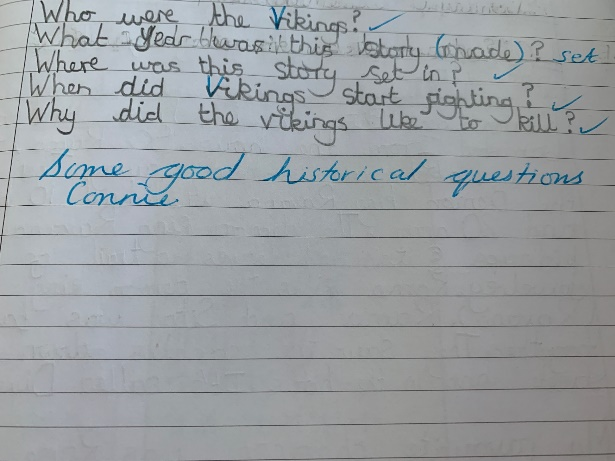 Who were the Vikings? ✓
What year was this story (made)? set
Where was this story set in? ✓
When did Vikings start fighting? ✓
Why did the vikings like to kill? ✓
Some good historical questions
Connie.